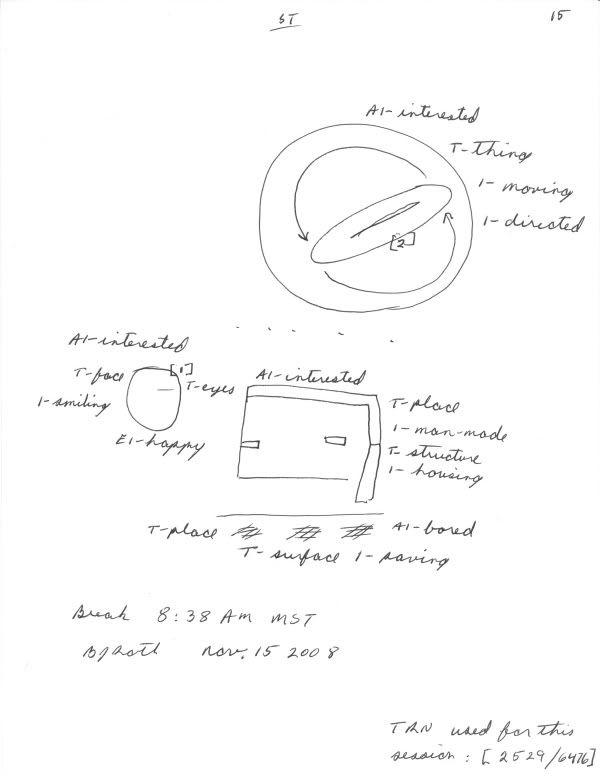 ST
15
AI-interested
T-thing
1-moving
1-directed
[2]
AI-interested
[1]
T-face
T-eyes
1-smiling
EI-happy
AI-interested
T-place
1-man-made
T-structure
1-housing
T-place
AI-bored
T-surface 1-paving
Break 8:38 AM MST
Nov. 15 2008
TRN used for this
session: [2529/6476]